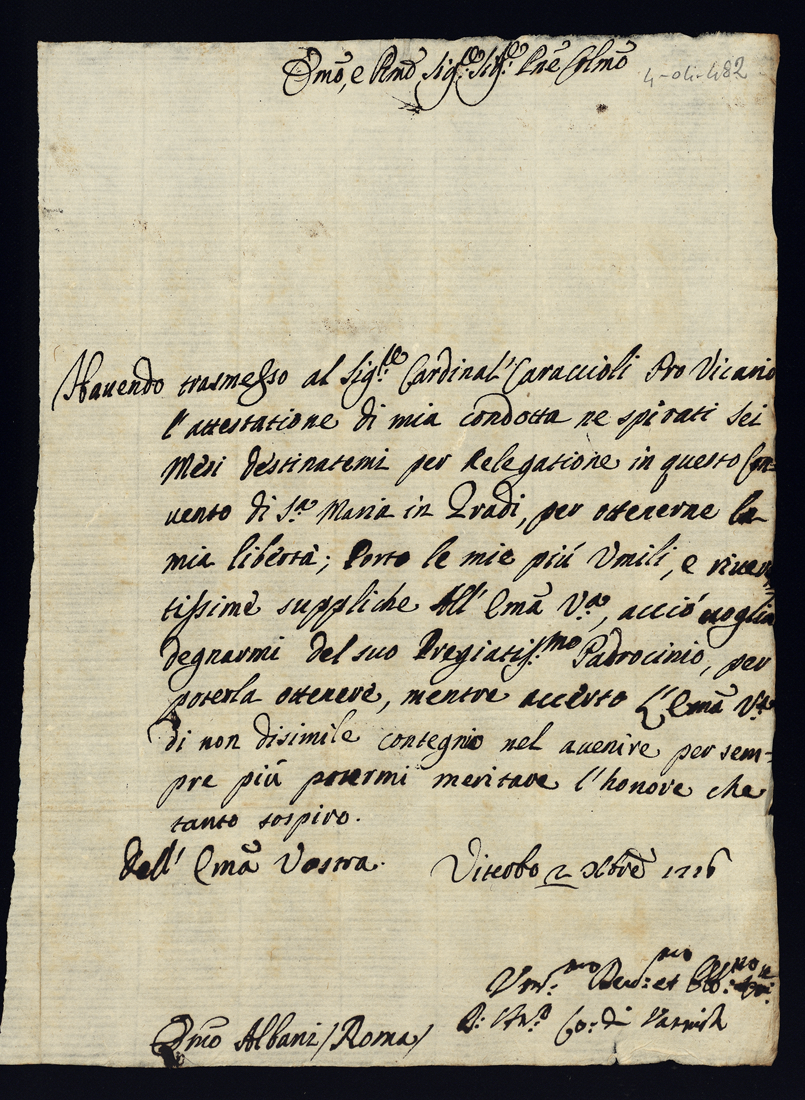 Em̃o, e Rm̃o Sig.re Sig.re Pne Colmo
4-04-482
Havendo trasmesso al Sig.re Cardinal' Caraccioli Pro Vicario
l'attestatione di mia condotta ne spirati sei
Mesi destinatemi per Relegatione in questo Con-
vento di S.a Maria in Gradi, per ottenerne la
mia libertà; Porto le mie più Umili, e riveren
tissime suppliche All' Em̃a V.a, acciò voglia
degnarmi del suo Pregiatiss.mo Padrocinio, per
poterla ottenere, mentre accerto L' Em̃a V.a
di non disimile contegnio nel avenire per sem-
pre più potermi meritare l'honore che
tanto sospiro.
Dell' Em̃a Vostra. Viterbo 2 Xbre 1716
Um.mo Dev.mo et Obb.mo
Co: di
Em̃o Albani /Roma/